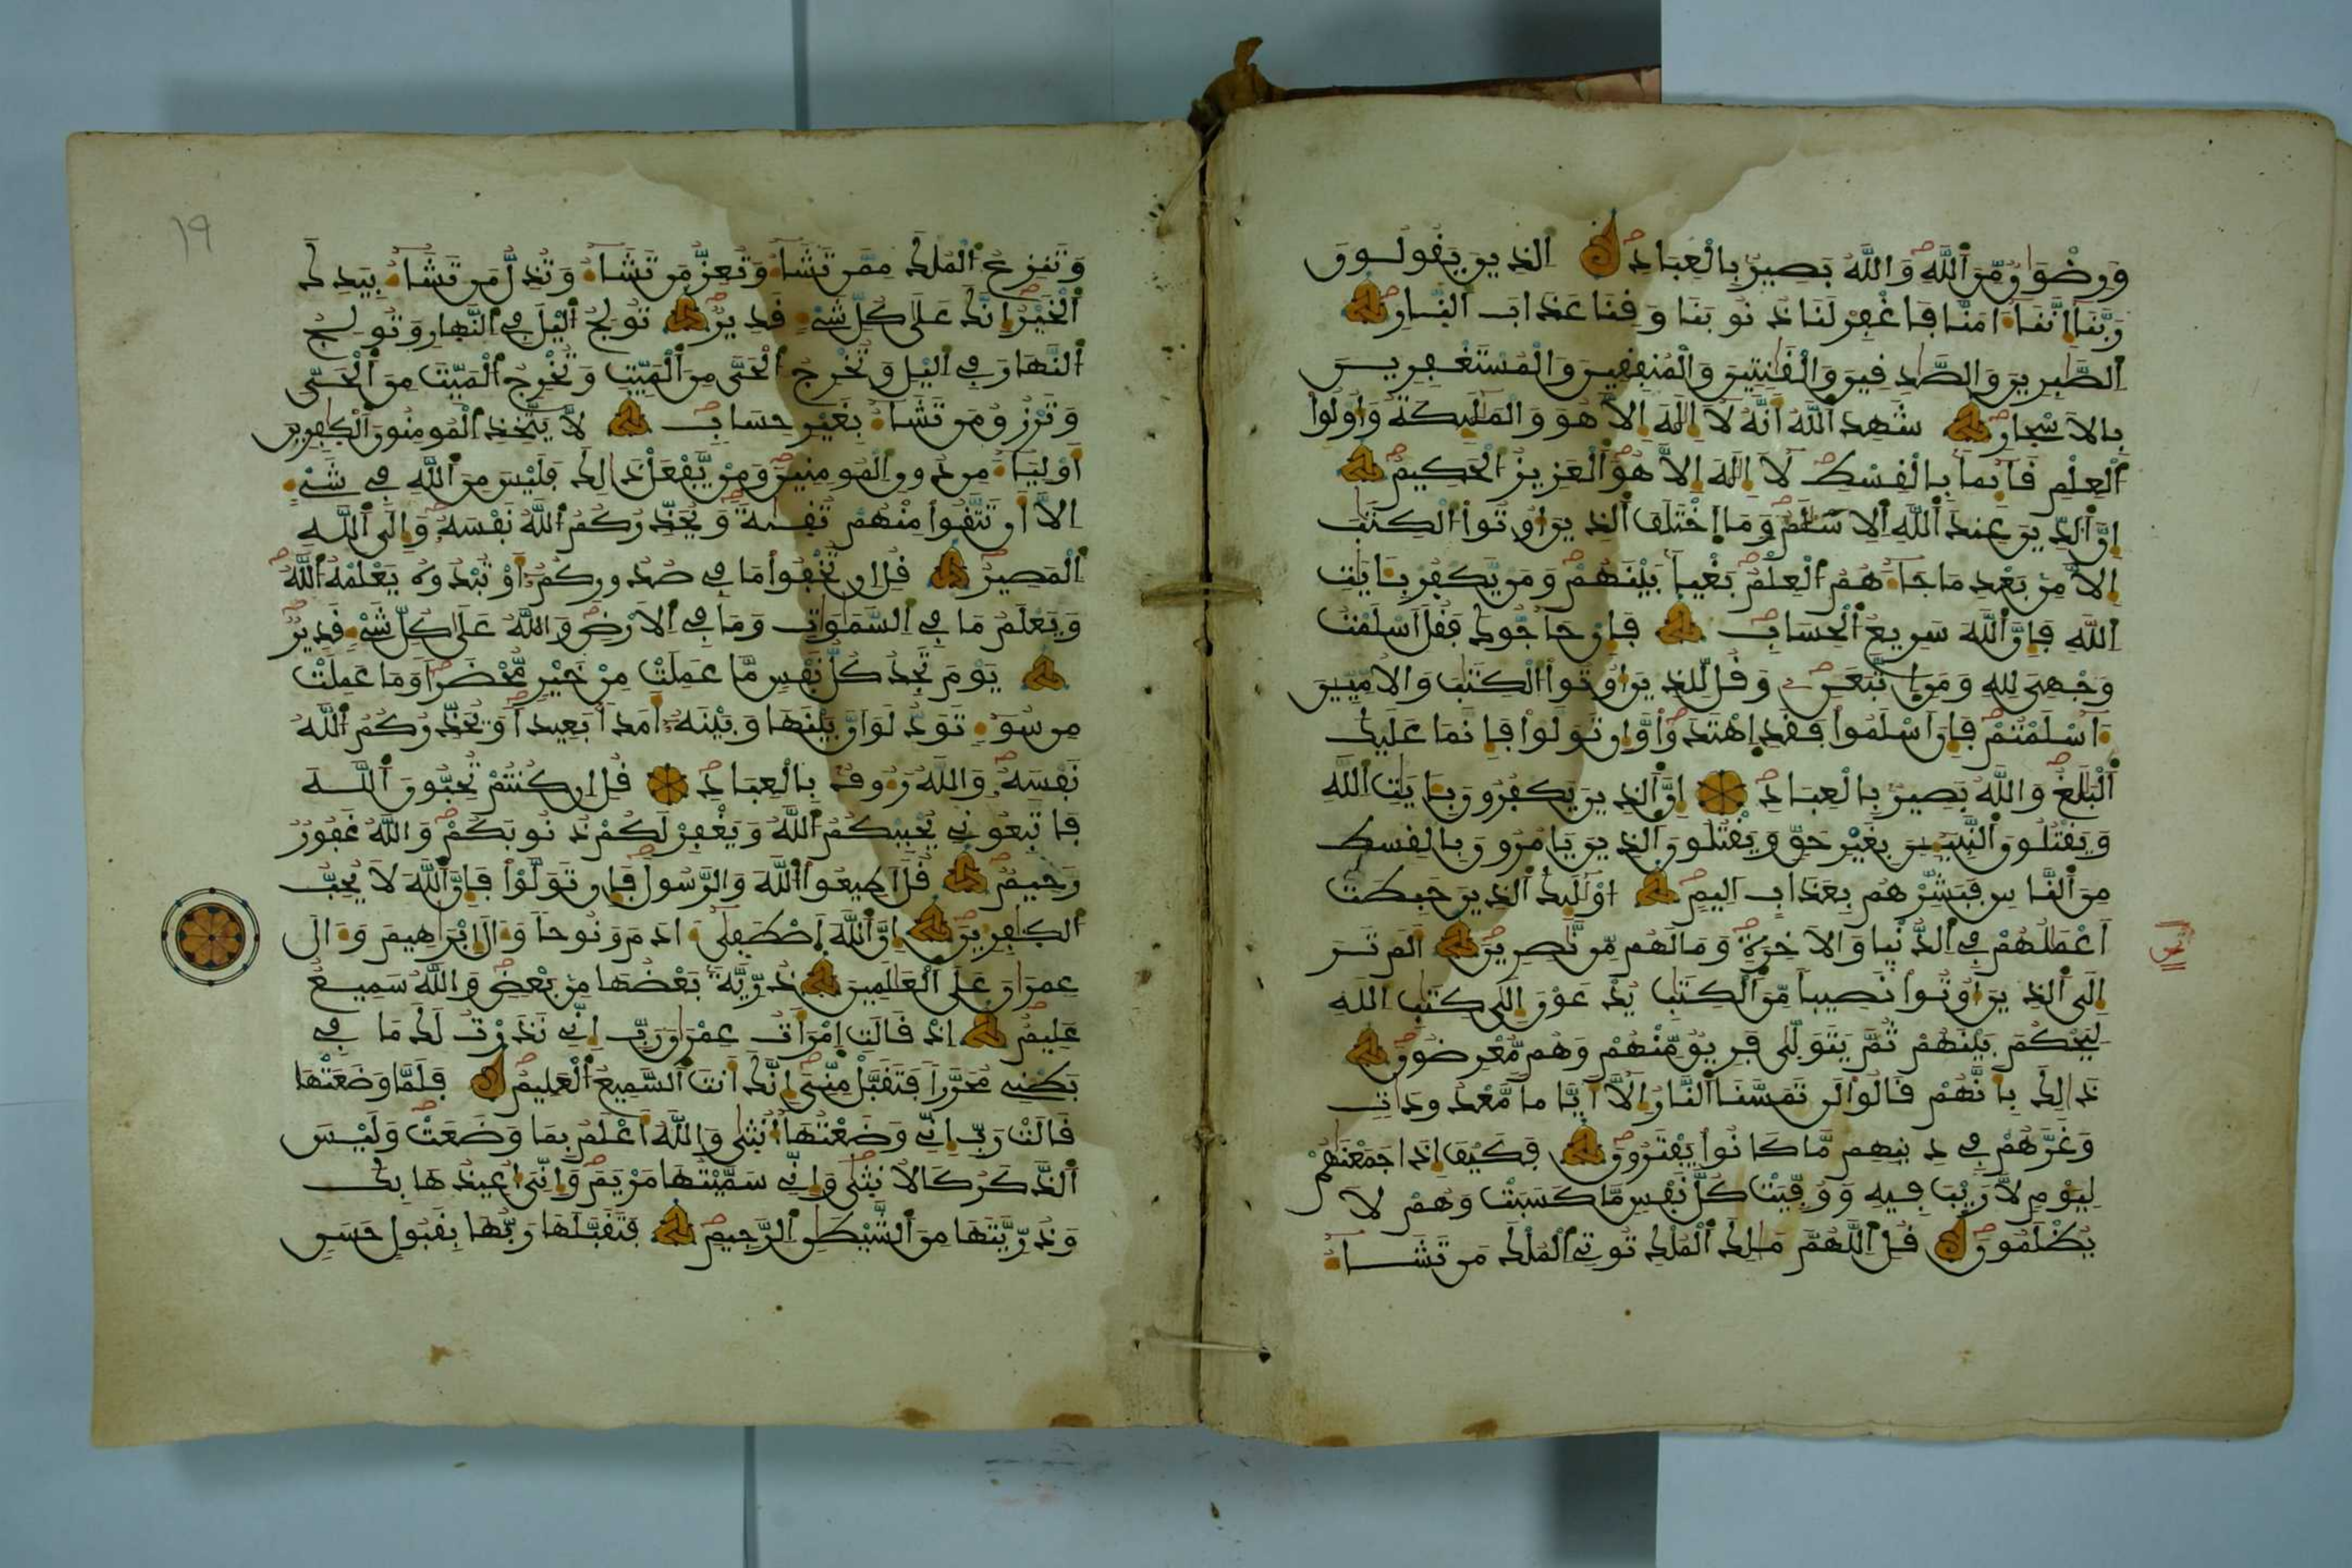 وَرِضْوَٰنٌ مِّنَ ٱللَّهِ وَاللَّهُ بَصِيرٌ بِالْعِبَادِ الذِينَ يَقُولُونَ
رَبَّنَا إِنَّنَا ءَامَنَّا فَاغْفِرْ لَنَا ذُنُوبَنَا وَقِنَا عَذَابَ النَّارِ
الصَّٰبِرِينَ وَالصَّٰدِقِينَ وَالْقَٰنِتِينَ وَالْمُنفِقِينَ وَالْمُسْتَغْفِرِينَ
بِالَاسْحارِ شَهِدَ اللَّهُ أَنَّهُ لَا إِلَٰهَ إِلَّا هُوَ وَالْمَلَٰئِكَةُ وَأُوْلُوا
الْعِلْمِ قَائِماً بِالْقِسْطِ لَا إِلَٰهَ إِلَّا هُوَ الْعَزِيزُ الْحَكِيمُ
إِنَّ الدِّينَ عِندَ اللَّهِ الِاسْلَٰمُ وَمَا اخْتَلَفَ الذِينَ أُوتُوا الْكِتَٰبَ
إِلَّا مِنْ بَعْدِ مَا جَاءَهُمُ الْعِلْمُ بَغْياً بَيْنَهُمْ وَمَنْ يَّكْفُرْ بِـَٔايَٰتِ
اللَّهِ فَإِنَّ اللَّهَ سَرِيعُ الْحِسَابِ فَإِنْ حَاجُّوكَ فَقُلَ اسْلَمْتُ
وَجْهِيَ لِلهِ وَمَنِ اتَّبَعَنِ وَقُل لِّلذِينَ أُوتُوا الْكِتَٰبَ وَالُامِّيِّينَ
ءَآسْلَمْتُمْ فَإِنَ اسْلَمُوا فَقَدِ اهْتَدَوا وَّإِن تَوَلَّوْا فَإِنَّمَا عَلَيْكَ
الْبَلَٰغُ وَاللَّهُ بَصِيرٌ بِالْعِبَادِ إِنَّ الذِينَ يَكْفُرُونَ بِـَٔايَٰتِ اللَّهِ
وَيَقْتُلُونَ النَّبِيـِٕينَ بِغَيْرِ حَقٍّ وَيَقْتُلُونَ الذِينَ يَامُرُونَ بِالْقِسْطِ
مِنَ النَّاسِ فَبَشِّرْهُم بِعَذَابٍ اَلِيمٍ أُوْلَٰئِكَ الذِينَ حَبِطَتَ
اَعْمَٰلُهُمْ فِي الدُّنْيا وَالَاخِرَةِ وَمَا لَهُم مِّن نَّٰصِرِينَ أَلَمْ تَرَ
إِلَى الذِينَ أُوتُوا نَصِيباً مِّنَ الْكِتَٰبِ يُدْعَوْنَ إِلَىٰ كِتَٰبِ اللهِ
لِيَحْكُمَ بَيْنَهُمْ ثُمَّ يَتَوَلَّىٰ فَرِيقٌ مِّنْهُمْ وَهُم مُّعْرِضُونَ
ذَٰلِكَ بِأَنَّهُمْ قَالُوا لَن تَمَسَّنَا النَّارُ إِلَّا أَيَّاماً مَّعْدُودَاتٍ
وَغَرَّهُمْ فِي دِينِهِم مَّا كَانُوا يَفْتَرُونَ فَكَيْفَ إِذَا جَمَعْنَٰهُمْ
لِيَوْمٍ لَّا رَيْبَ فِيهِ وَوُفِّيَتْ كُلُّ نَفْسٍ مَّا كَسَبَتْ وَهُمْ لَا
يُظْلَمُونَ قُلِ اللَّهُمَّ مَٰلِكَ الْمُلْكِ تُوتِي الْمُلْكَ مَن تَشَاءُ
ثمن
١٩
وَتَنزِعُ الْمُلْكَ مِمَّن تَشَاءُ وَتُعِزُّ مَن تَشَاءُ وَتُذِلُّ مَن تَشَاءُ بِيَدِكَ
الْخَيْرُ إِنَّكَ عَلَىٰ كُلِّ شَيْءٍ قَدِيرٌ تُولِجُ الَّيْلَ فِي النَّهارِ وَتُولِجُ
النَّهَارَ فِي الَّيْلِ وَتُخْرِجُ الْحَيَّ مِنَ الْمَيِّتِ وَتُخْرِجُ الْمَيِّتَ مِنَ الْحَيِّ
وَتَرْزُقُ مَن تَشَاءُ بِغَيْرِ حِسَابٍ لَّا يَتَّخِذِ الْمُومِنُونَ الْكَٰفِرِينَ
أَوْلِيَاءَ مِن دُونِ الْمُومِنِينَ وَمَنْ يَّفْعَلْ ذَٰلِكَ فَلَيْسَ مِنَ اللَّهِ فِي شَيْءٍ
إِلَّا أَن تَتَّقُوا مِنْهُمْ تُقَىٰةً وَيُحَذِّرُكُمُ اللَّهُ نَفْسَهُ وَإِلَى اللَّهِ
الْمَصِيرُ قُلِ ان تُخْفُوا مَا فِي صُدُورِكُمُ أَوْ تُبْدُوهُ يَعْلَمْهُ اللَّهُ
وَيَعْلَمُ مَا فِي السَّمَٰوَٰتِ وَمَا فِي الَارْضِ وَاللَّهُ عَلَىٰ كُلِّ شَيْءٍ قَدِيرٌ
يَوْمَ تَجِدُ كُلُّ نَفْسٍ مَّا عَمِلَتْ مِنْ خَيْرٍ مُّحْضَراً وَمَا عَمِلَتْ
مِن سُوءٍ تَوَدُّ لَوَ انَّ بَيْنَهَا وَبَيْنَهُ أَمَداً بَعِيداً وَيُحَذِّرُكُمُ اللَّهُ
نَفْسَهُ وَاللَّهُ رَءُوفٌ بِالْعِبَادِ قُلِ ان كُنتُمْ تُحِبُّونَ اللَّهَ
فَاتَّبِعُونِي يُحْبِبْكُمُ اللَّهُ وَيَغْفِرْ لَكُمْ ذُنُوبَكُمْ وَاللَّهُ غَفُورٌ
رَحِيمٌ قُلَ اطِيعُوا اللَّهَ وَالرَّسُولَ فَإِن تَوَلَّوْا فَإِنَّ اللَّهَ لَا يُحِبُّ
الْكَٰفِرِينَ إِنَّ اللَّهَ اصْطَفَىٰ ءَادَمَ وَنُوحاً وَءَالَ إِبْرَٰهِيمَ وَءَالَ
عِمْرَٰنَ عَلَى الْعَٰلَمِينَ ذُرِّيَّةً بَعْضُهَا مِنْ بَعْضٍ وَاللَّهُ سَمِيعٌ
عَلِيمٌ إِذْ قَالَتِ امْرَأَتُ عِمْرَٰنَ رَبِّ إِنِّي نَذَرْتُ لَكَ مَا فِي
بَطْنِي مُحَرَّراً فَتَقَبَّلْ مِنِّيَ إِنَّكَ أَنتَ السَّمِيعُ الْعَلِيمُ فَلَمَّا وَضَعَتْهَا
قَالَتْ رَبِّ إِنِّي وَضَعْتُهَا أُنثَىٰ وَاللَّهُ أَعْلَمُ بِمَا وَضَعَتْ وَلَيْسَ
الذَّكَرُ كَالُانثَىٰ وَإِنِّي سَمَّيْتُهَا مَرْيَمَ وَإِنِّيَ أُعِيذُهَا بِكَ
وَذُرِّيَّتَهَا مِنَ الشَّيْطَٰنِ الرَّجِيمِ فَتَقَبَّلَهَا رَبُّهَا بِقَبُولٍ حَسَنٍ